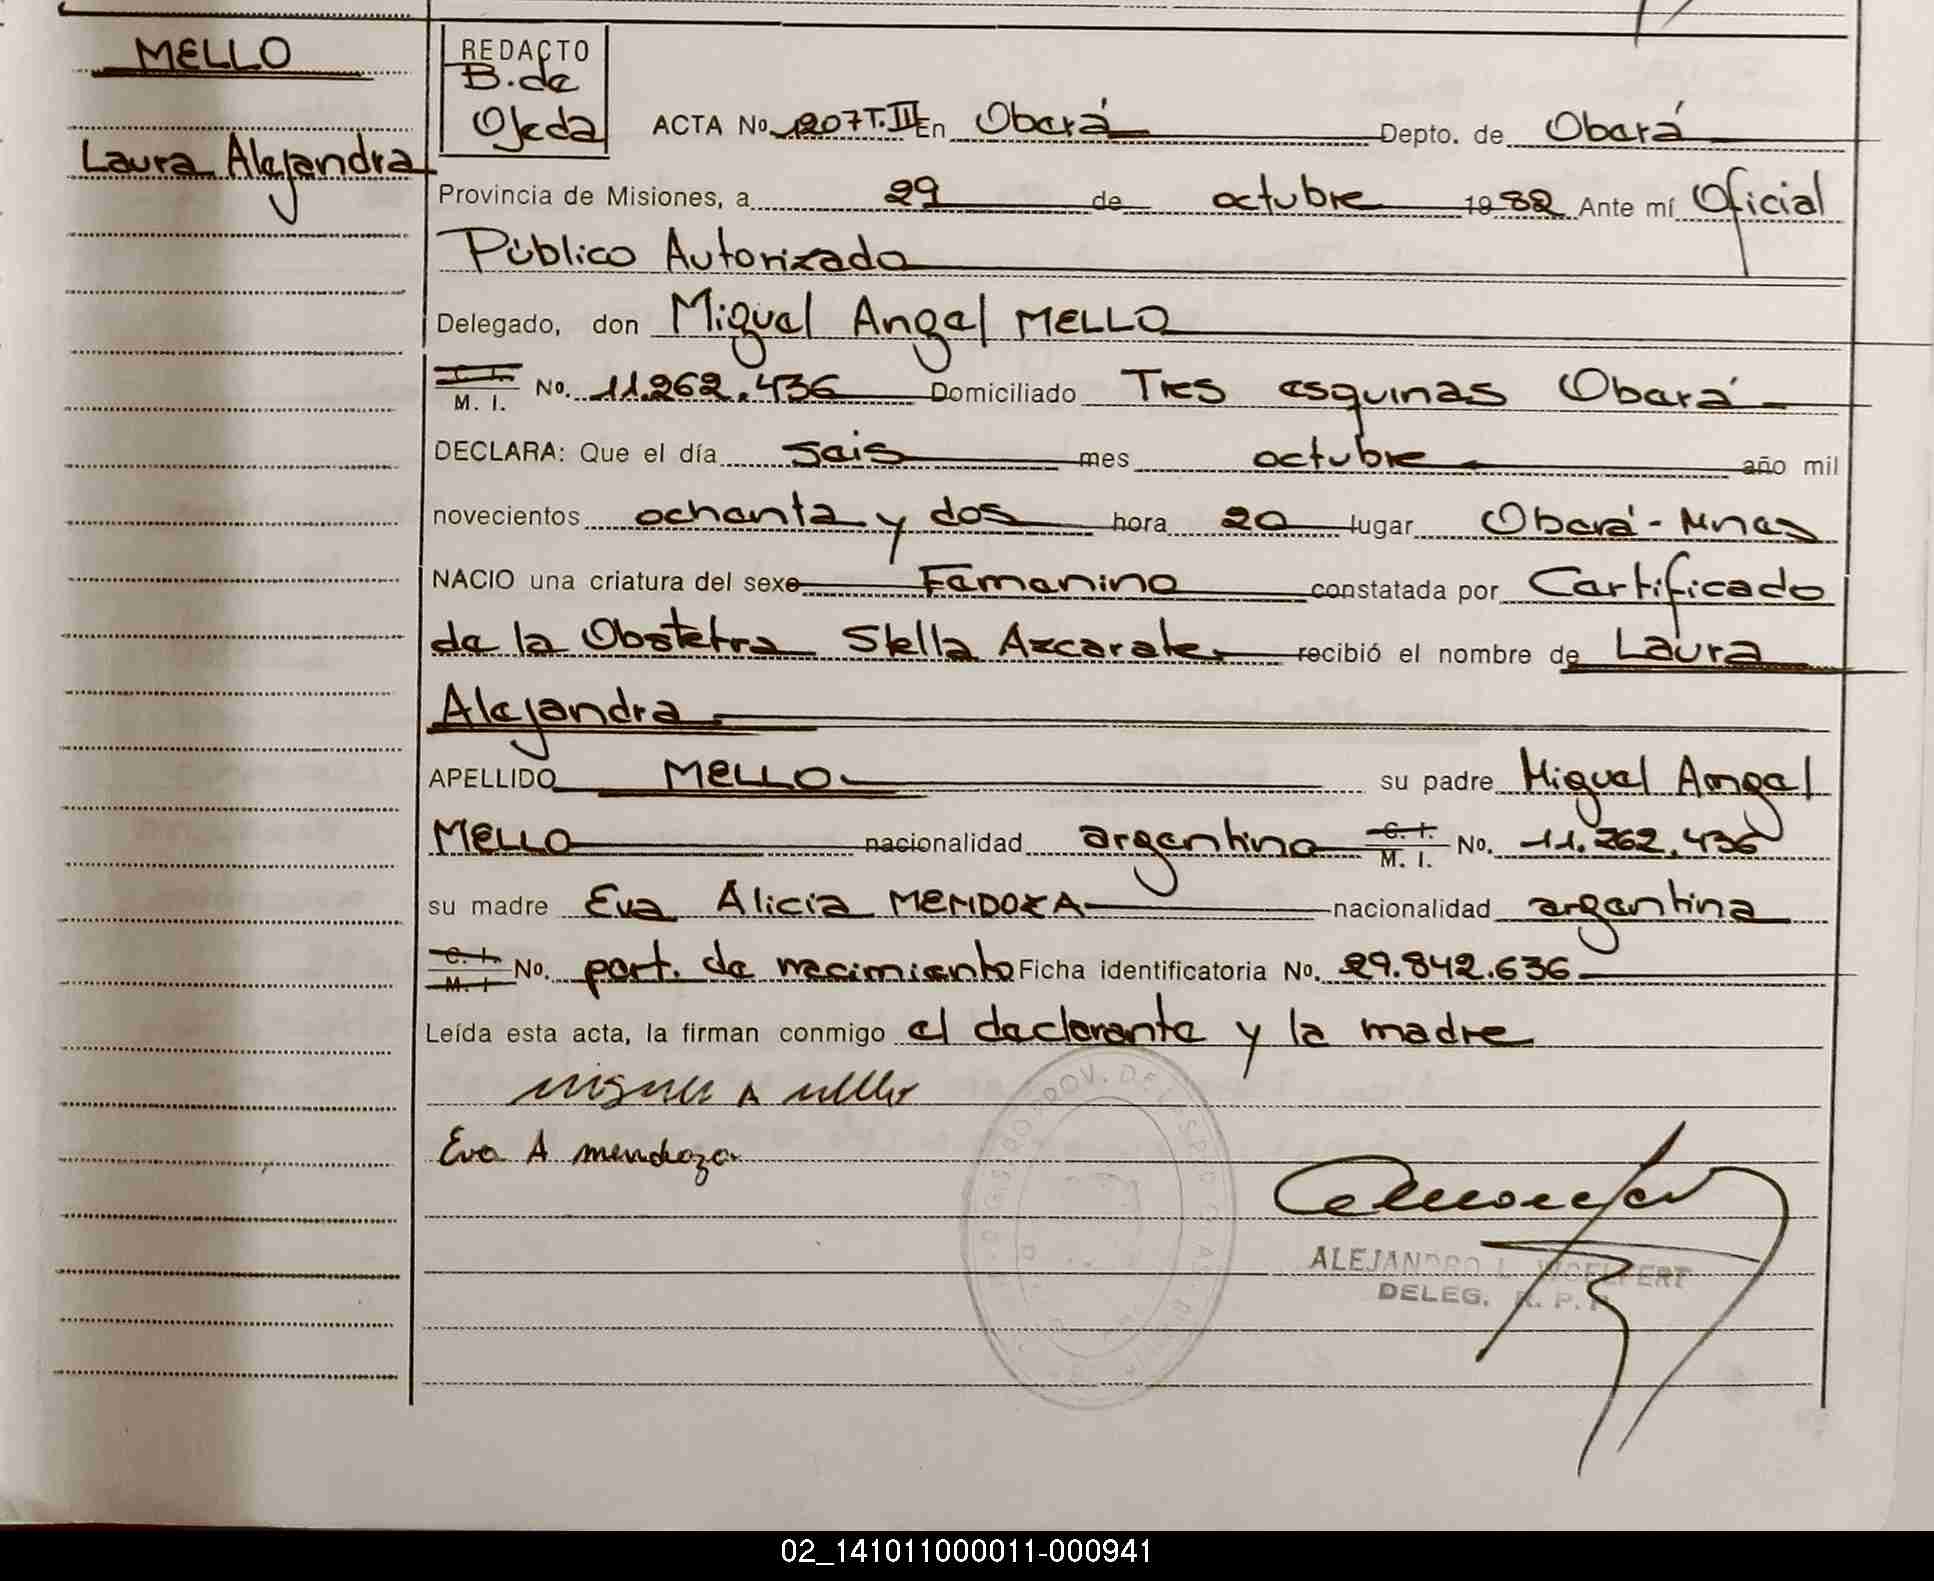 MELLO
Laura Alejandra
REDACTO
B. de
Ojeda
ACTA No. 1207 T. III En Oberá Depto. de Oberá
Provincia de Misiones, a 29 de octubre 1982 Ante mí Oficial
Público Autorizado
Delegado, don Miguel Angel MELLO
C. I.
M. I. No. 11.262.436 Domiciliado Tres esquinas Oberá
DECLARA: Que el día seis mes octubre año mil
novecientos ochenta y dos hora 20 lugar Oberá - Mnes
NACIO una criatura del sexo Femenino constatada por Certificado
de la Obstetra Stella Azcarate recibió el nombre de Laura
Alejandra
APELLIDO MELLO su padre Miguel Angel
MELLO nacionalidad argentino C. I. M. I. No. 11.262.436
su madre Eva Alicia MENDOZA nacionalidad argentina
C. I. M. I. No. part. de nacimiento Ficha identificatoria No. 29.842.636
Leída esta acta, la firman conmigo el declarante y la madre
Miguel A Mello
Eva A mendoza
ALEJANDRO L.
DELEG. R. P. P.
02_141011000011-000941